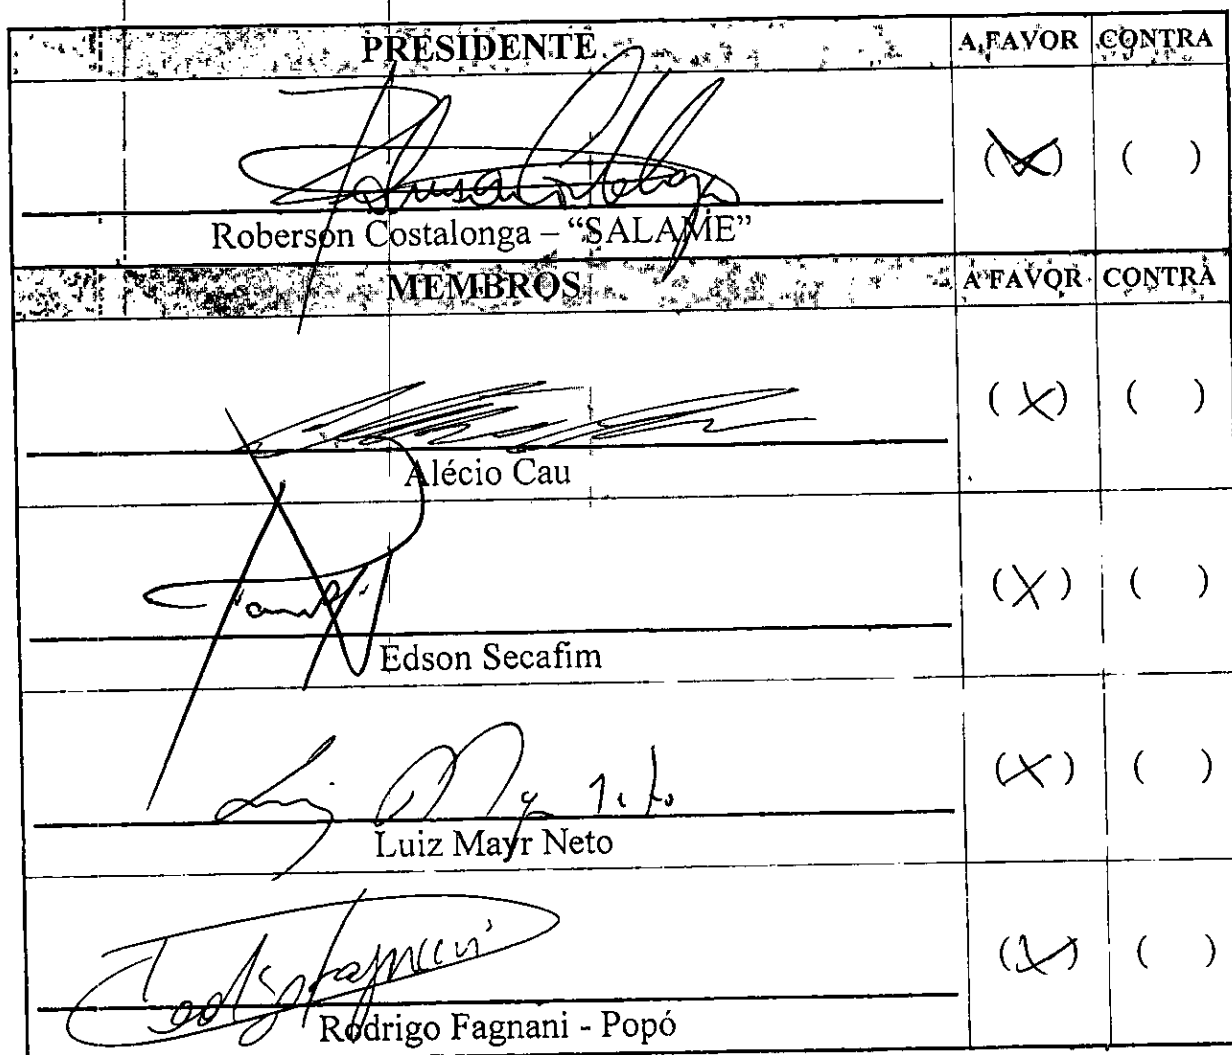 PRESIDENTE A FAVOR CONTRA
(X) ( )
Roberson Costalonga – “SALAME”
MEMBROS A FAVOR CONTRA
(X) ( )
Alécio Cau
(X) ( )
Edson Secafim
(X) ( )
Luiz Mayr Neto
Luiz Mayr Neto
(X) ( )
Rodrigo Fagnani - Popó